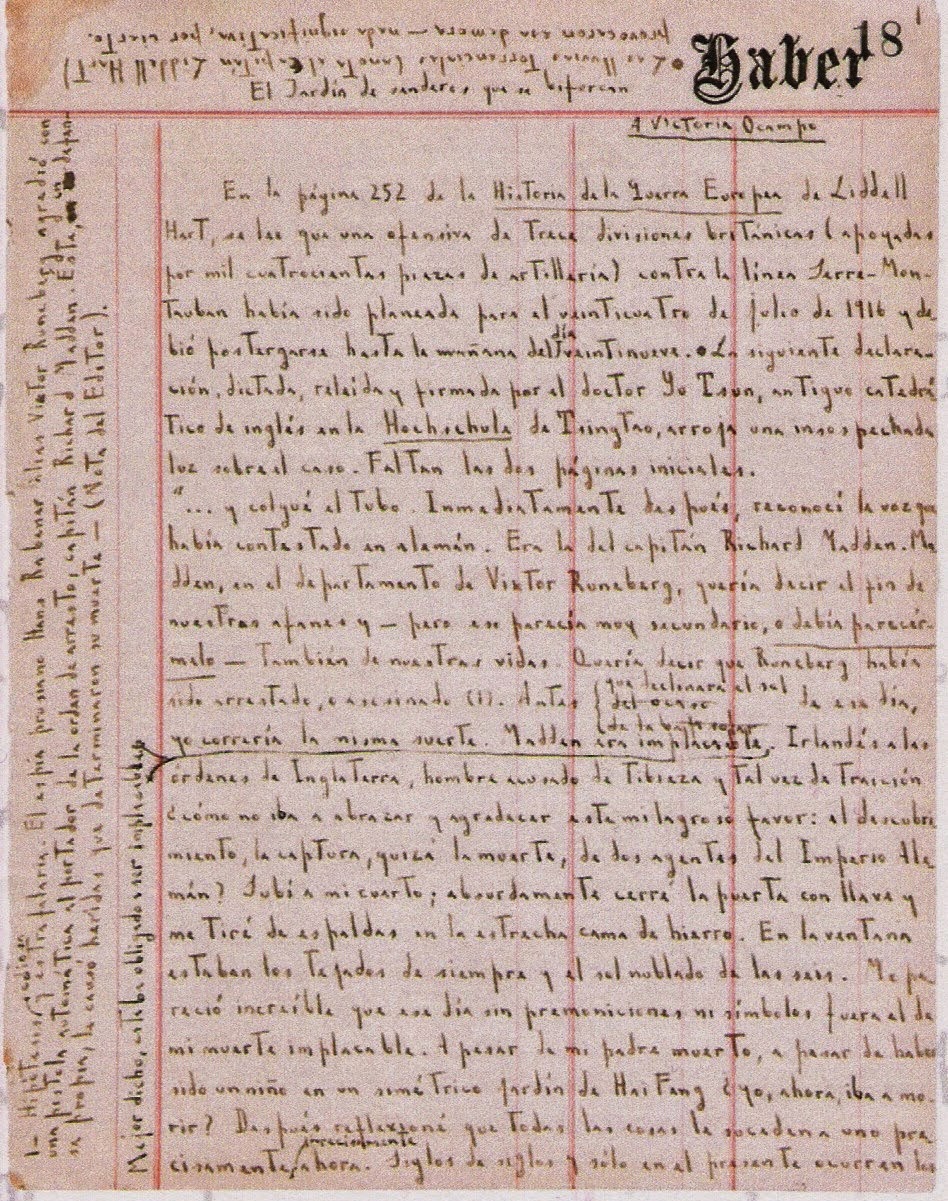 Haber 18
1
• Las lluvias torrenciales (anota el capitán Liddell Hart)
provocaron esa demora — nada significativa, por cierto.
El Jardín de senderos que se bifurcan
A Victoria Ocampo
En la página 252 de la Historia de la Guerra Europea de Liddell
Hart, se lee que una ofensiva de trece divisiones británicas (apoyadas
por mil cuatrocientas piezas de artillería) contra la línea Serre-Mon-
tauban había sido planeada para el veinticuatro de julio de 1916 y de
bió postergarse hasta la mañana del día veintinueve. • La siguiente declara-
ción, dictada, releída y firmada por el doctor Yu Tsun, antiguo catedrá
tico de inglés en la Hochschule de Tsingtao, arroja una insospechada
luz sobre el caso. Faltan las dos páginas iniciales.
"... y colgué el tubo. Inmediatamente después, reconocí la voz que
había contestado en alemán. Era la del capitán Richard Madden. Ma
dden, en el departamento de Viktor Runeberg, quería decir el fin de
nuestros afanes y — pero eso parecía muy secundario, o debía parecér-
melo — también de nuestras vidas. Quería decir que Runeberg había
sido arrestado, o asesinado (1). Antes { que declinara el sol
{ del ocaso de ese día,
{ de la
yo correría la misma suerte. Madden era implacable. Irlandés a las
órdenes de Inglaterra, hombre acusado de tibieza y tal vez de traición
¿cómo no iba a abrazar y agradecer este milagroso favor: el descubri
miento, la captura, quizá la muerte, de dos agentes del Imperio Ale
mán? Subí a mi cuarto; absurdamente cerré la puerta con llave y
me tiré de espaldas en la estrecha cama de hierro. En la ventana
estaban los tejados de siempre y el sol nublado de las seis. Me pa
reció increíble que ese día sin premoniciones ni símbolos fuera el de
mi muerte implacable. A pesar de mi padre muerto, a pesar de haber
sido un niño en un simétrico jardín de Hai Feng ¿yo, ahora, iba a mo-
rir? Después reflexioné que todas las cosas le suceden a uno pre
cisamente, precisamente ahora. Siglos de siglos y sólo en el presente ocurren los
Mejor dicho, estaba obligado a ser implacable
1 — Hipótesis odiosa y estrafalaria. El espía prusiano Hans Rabener alias Viktor Runeberg agredió con
una pistola automática al portador de la orden de arresto, capitán Richard Madden. Éste, en defen-
sa propia, le causó heridas que determinaron su muerte — (Nota del Editor).